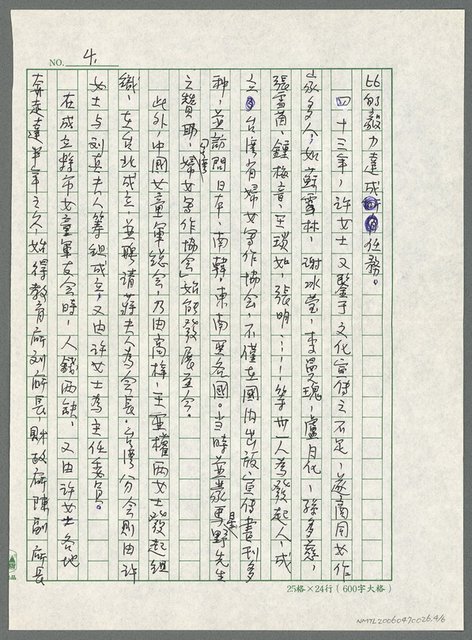 NO. 4.
比的毅力達成任務。
四十三年,許女士又鑒于文化宣傳之不足,遂商同女作
家多人,如蘇雪林,謝冰瑩,李曼瑰,盧月化,孫多慈,
張雪茵,鍾梅音,王琰如,張明……等卅一人為發起人,成
立台灣省婦女寫作協會,不僅在國內出版,宣傳書刊多
種,並訪問日本,南韓,東南亞各國。當時並蒙馬星野先生
之贊助,「台灣婦女寫作協會」始能發展至今。
此外,中國女童軍總會,乃由高梓,王亞權兩女士發起組
織,在台北成立,並聘請蔣夫人為會長,台灣分會則由許
女士与劉真夫人籌組成立,又由許女士為主任委員。
在成立縣市女童軍友會時,人錢兩缺,又由許女士各地
奔走達半年之久,始得教育所劉所長,財政所陳副所長
25格×24行(600字大格)
NMTL20060470026.4/6